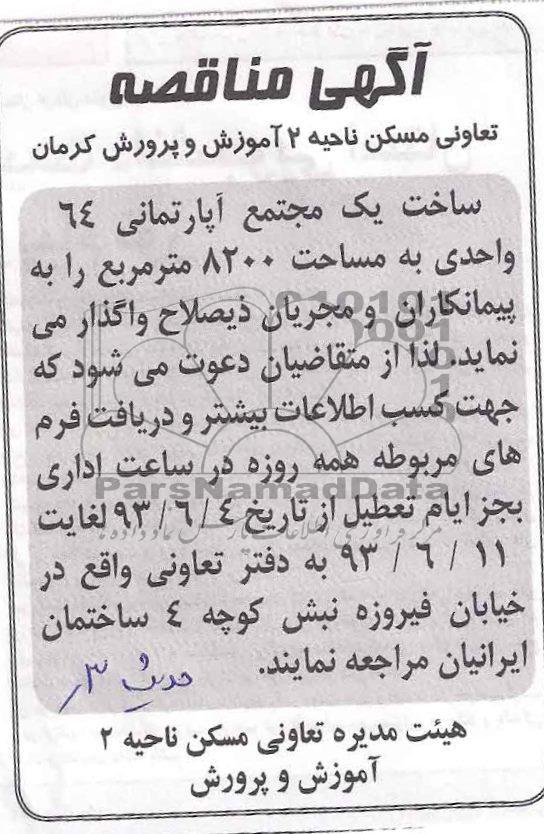 آگهی مناقصه
تعاونی مسکن ناحیه ۲ آموزش و پرورش کرمان
ساخت یک مجتمع آپارتمانی ٦٤
واحدی به مساحت ۸۲۰۰ مترمربع را به
پیمانکاران و مجریان ذیصلاح واگذار می
نماید. لذا از متقاضیان دعوت می شود که
جهت کسب اطلاعات بیشتر و دریافت فرم
های مربوطه همه روزه در ساعت اداری
بجز ایام تعطیل از تاریخ ٩٣/٦/٤ لغایت
٩٣/٦/١١ به دفتر تعاونی واقع در
خیابان فیروزه نبش کوچه ٤ ساختمان
ایرانیان مراجعه نمایند.
هیئت مدیره تعاونی مسکن ناحیه ۲
آموزش و پرورش
ParsNamadData